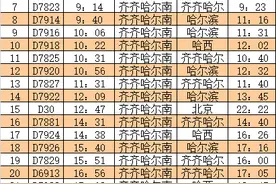 7 D7823 9：14 齐齐哈尔南 齐齐哈尔 9：23
8 D7914 9：40 齐齐哈尔南 哈尔滨 11：16
9 D7916 10：06 齐齐哈尔南 哈尔滨 11：31
10 D7918 10：22 齐齐哈尔南 哈西 12：02
11 D7825 10：31 齐齐哈尔南 齐齐哈尔 10：40
12 D7920 10：56 齐齐哈尔南 哈尔滨 12：32
13 D7827 11：31 齐齐哈尔南 齐齐哈尔 11：40
14 D7922 12：09 齐齐哈尔南 哈尔滨 13：45
15 D30 12：47 齐齐哈尔南 北京 22：25
16 D7881 14：31 齐齐哈尔南 齐齐哈尔 14：40
17 D7924 14：38 齐齐哈尔南 哈西 16：26
18 D7926 15：40 齐齐哈尔南 哈尔滨 17：16
19 D7829 15：51 齐齐哈尔南 齐齐哈尔 16：00
20 D6913 16：56 齐齐哈尔南 齐齐哈尔 17：05